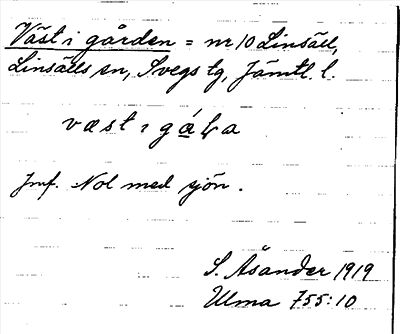 Väst i gården = nr 10 Linsäll,
Linsälls sn, Svegs tg, Jämtl. l.
væst ı
Jmf. Nol med sjön.
S. Åsander 1919
Ulma 755:10